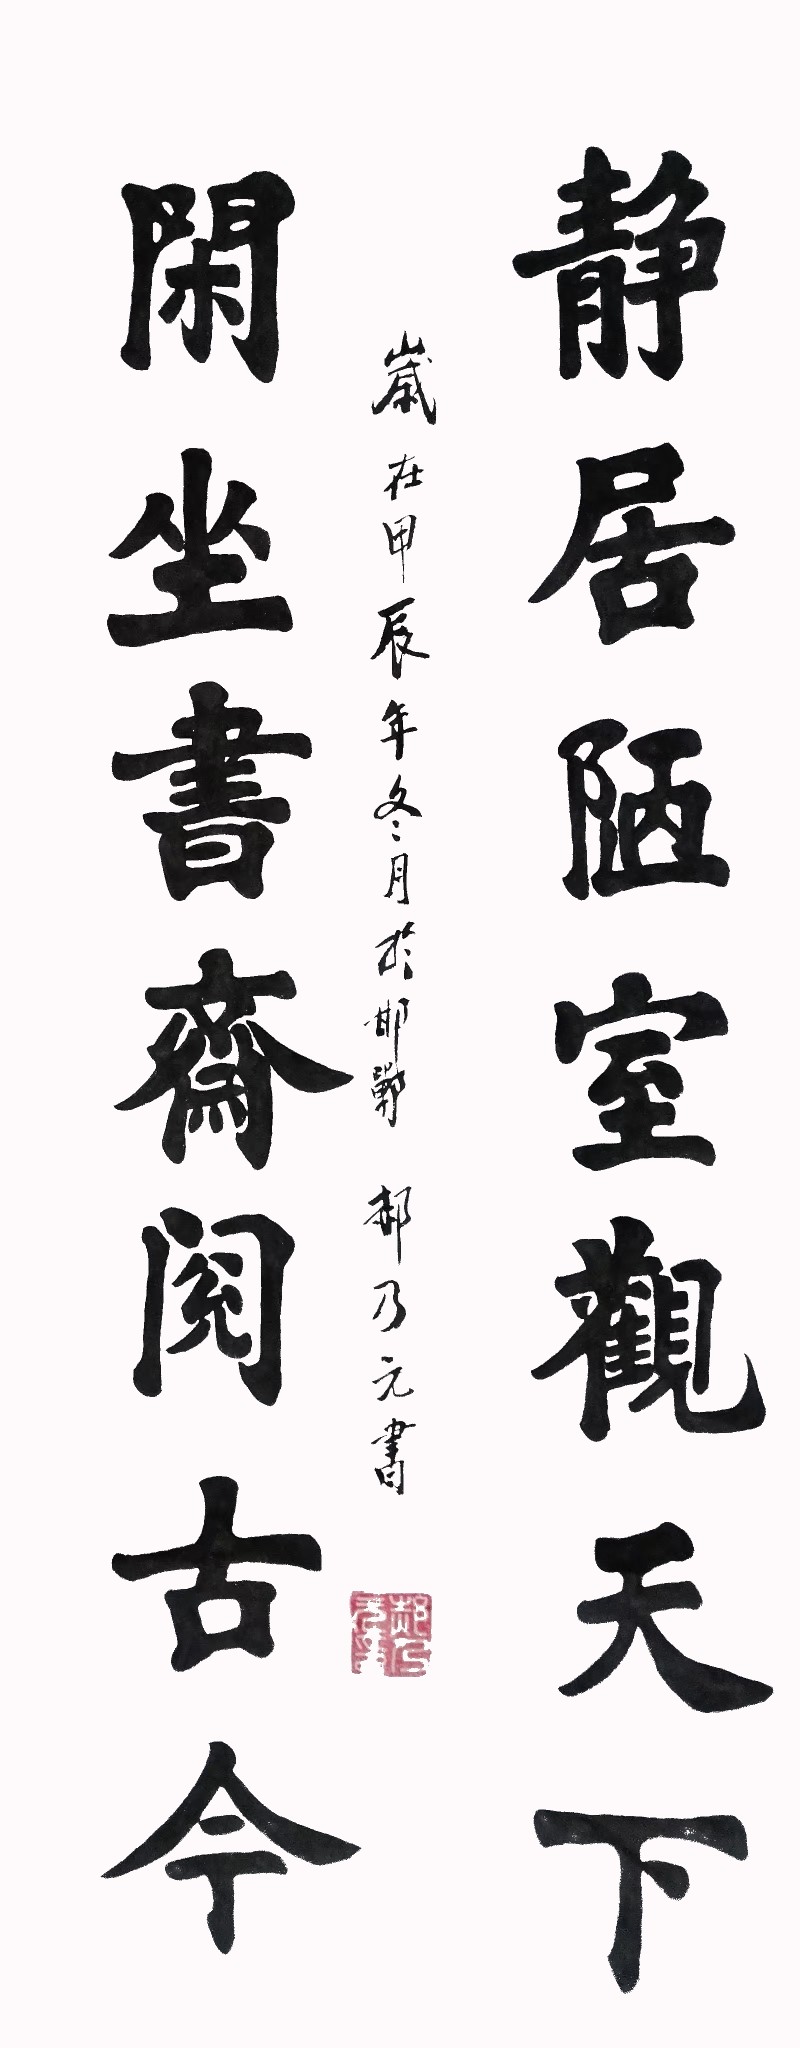 静居陋室觀天下
歲在甲辰年冬月於邯鄲 郝乃元書
閑坐書齋閲古今